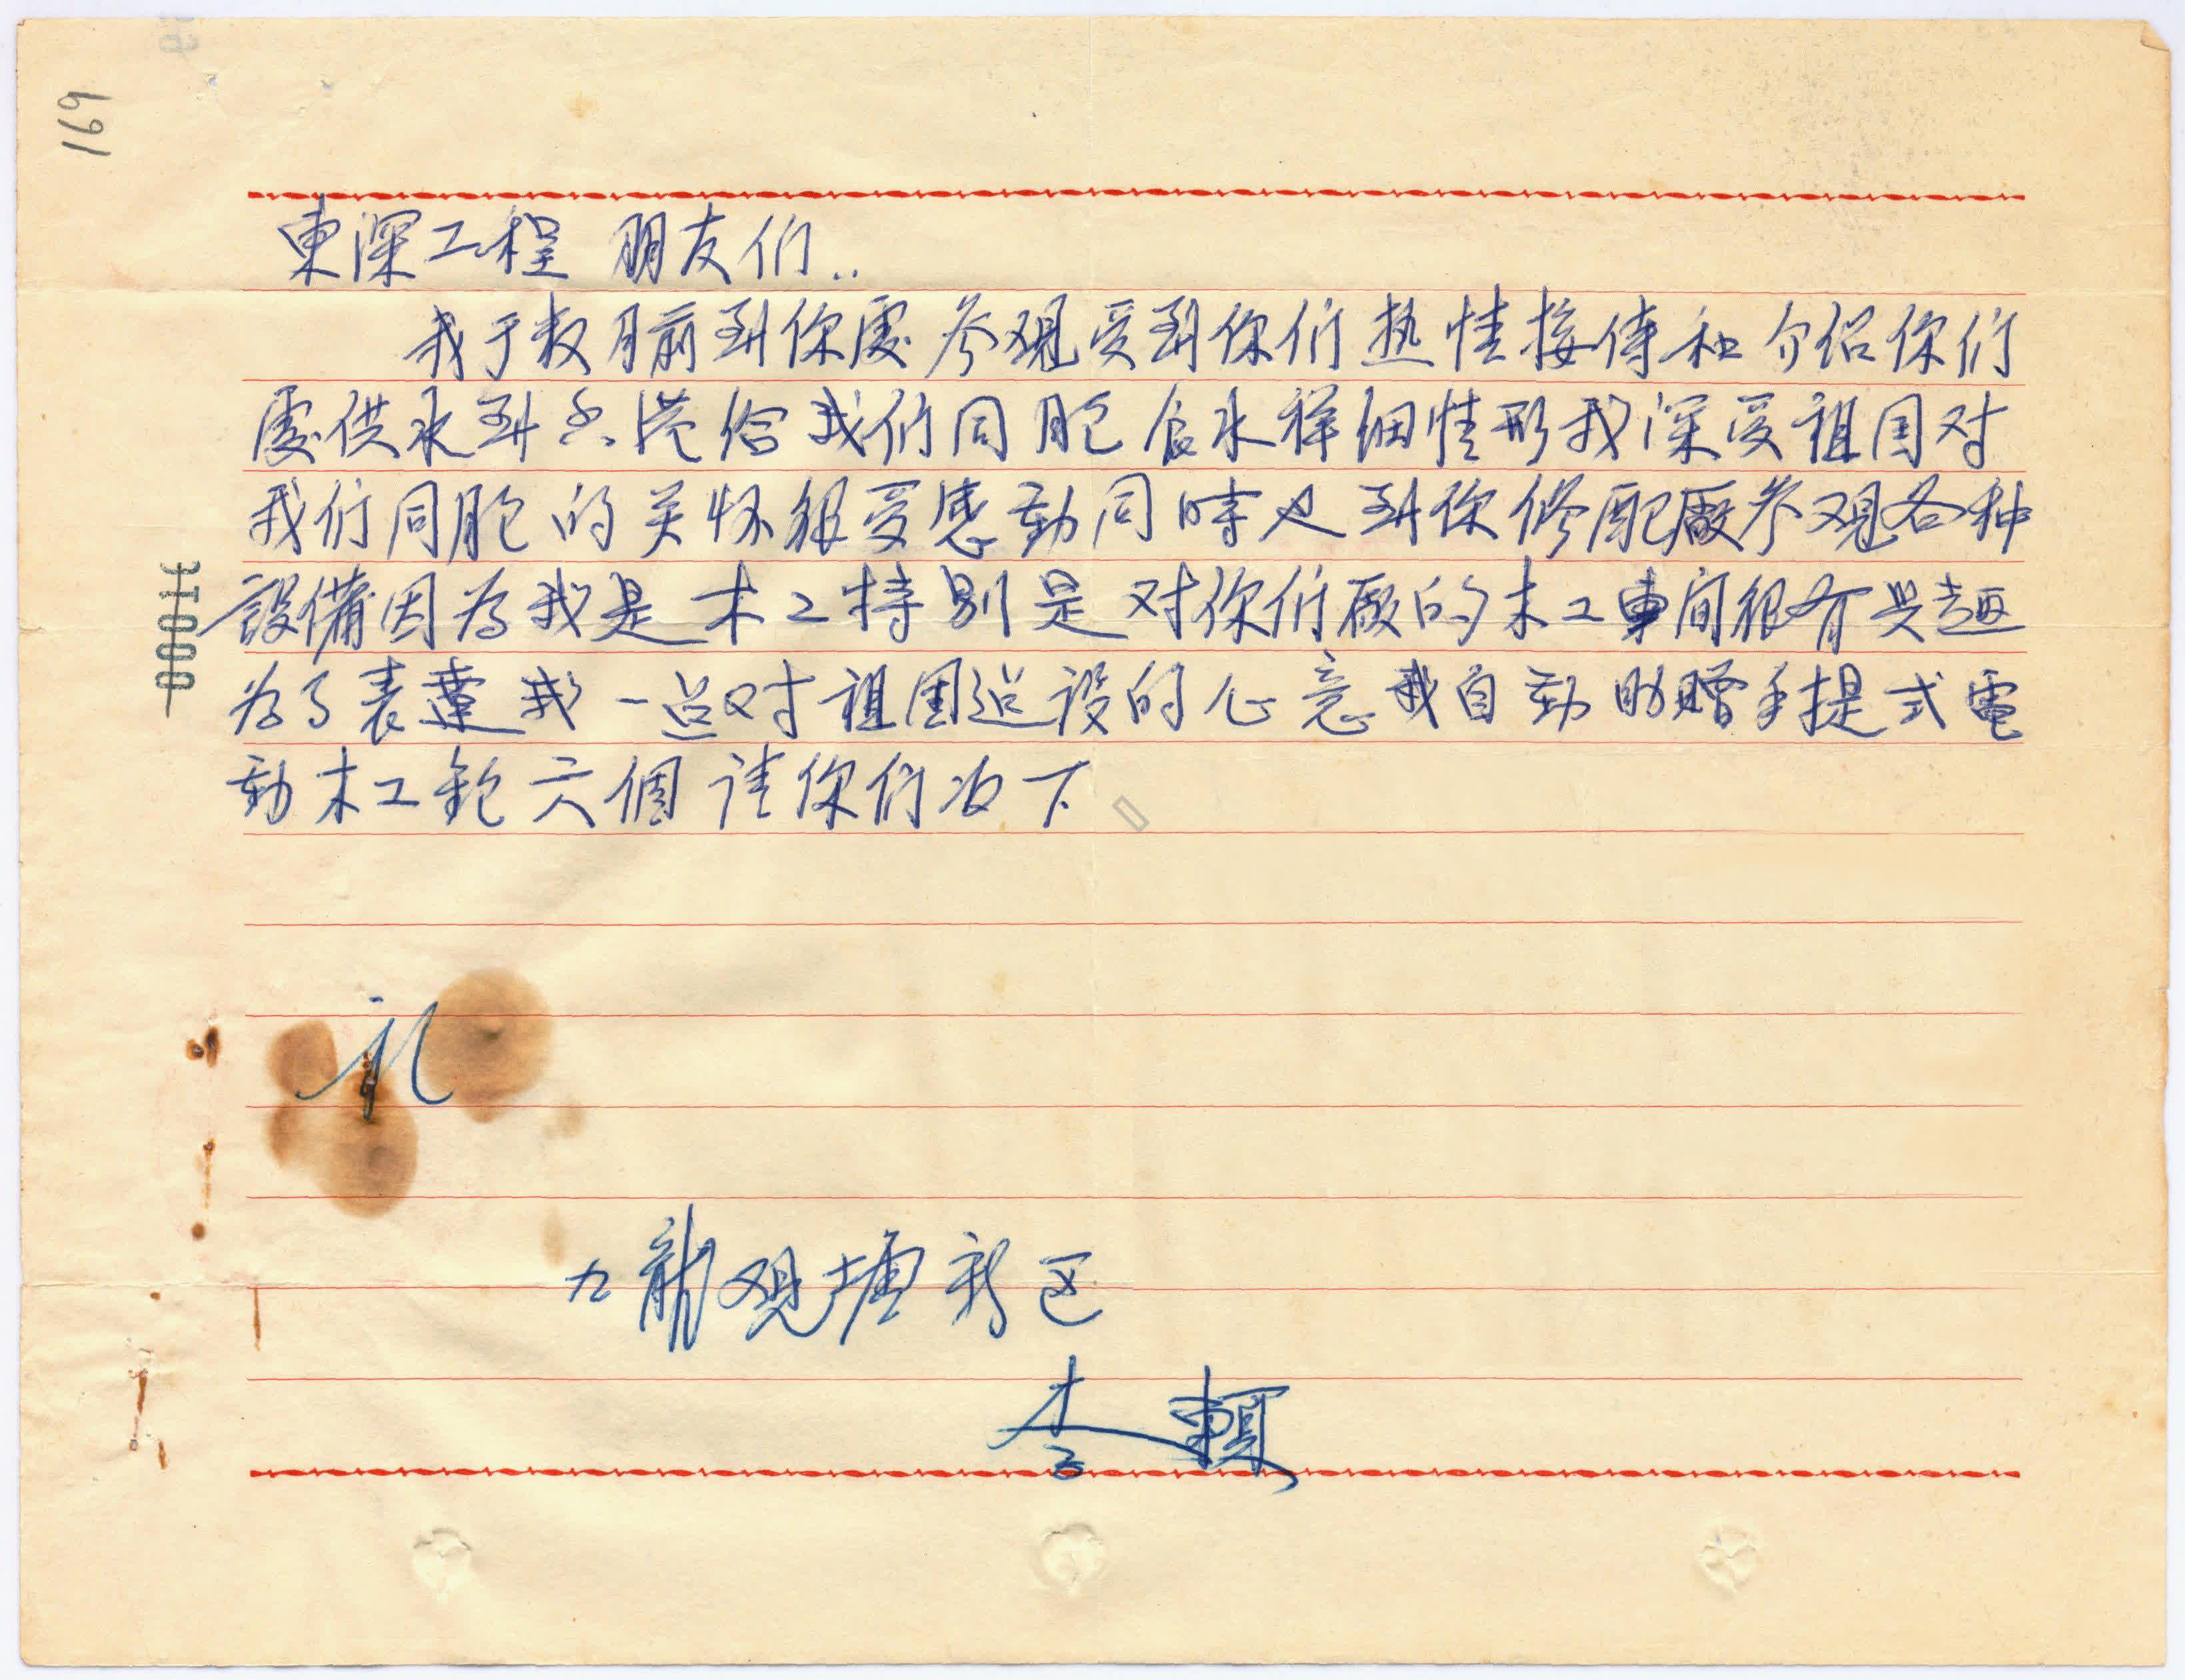 169
東深工程 朋友们..
我于数月前到你處参观受到你们热情接待和介绍你们
處供水到香港给我们同胞食水祥细情形我深受祖国对
我们同胞的关怀很受感動同時也到你修配廠参观各种
設備因为我是木工特别是对你们廠的木工車间很有兴趣
为了表達我一点对祖国建设的心意我自動助赠手提式電
動木工鉋六個请你们收下
礼
九龍观塘新区
李賴
11000